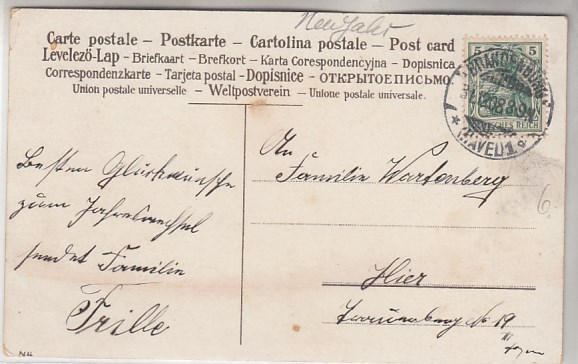 Neujahr
Carte postale – Postkarte – Cartolina postale – Post card
Levelező-Lap – Briefkaart – Brefkort – Karta Corespondencyjna – Dopisnica
Correspondenzkarte – Tarjeta postal – Dopisnice – ОТКРЫТОЕ ПИСЬМО
Union postale universelle – Weltpostverein – Unione postale universale.
5 5
BRANDENBURG
08.8-9N.
(HAVEL) 1
DEUTSCHES REICH
An
Familie Wartenberg
Hier
No 19
Besten Glückwünsche
zum Jahreswechsel
sendet Familie
Trille
6.